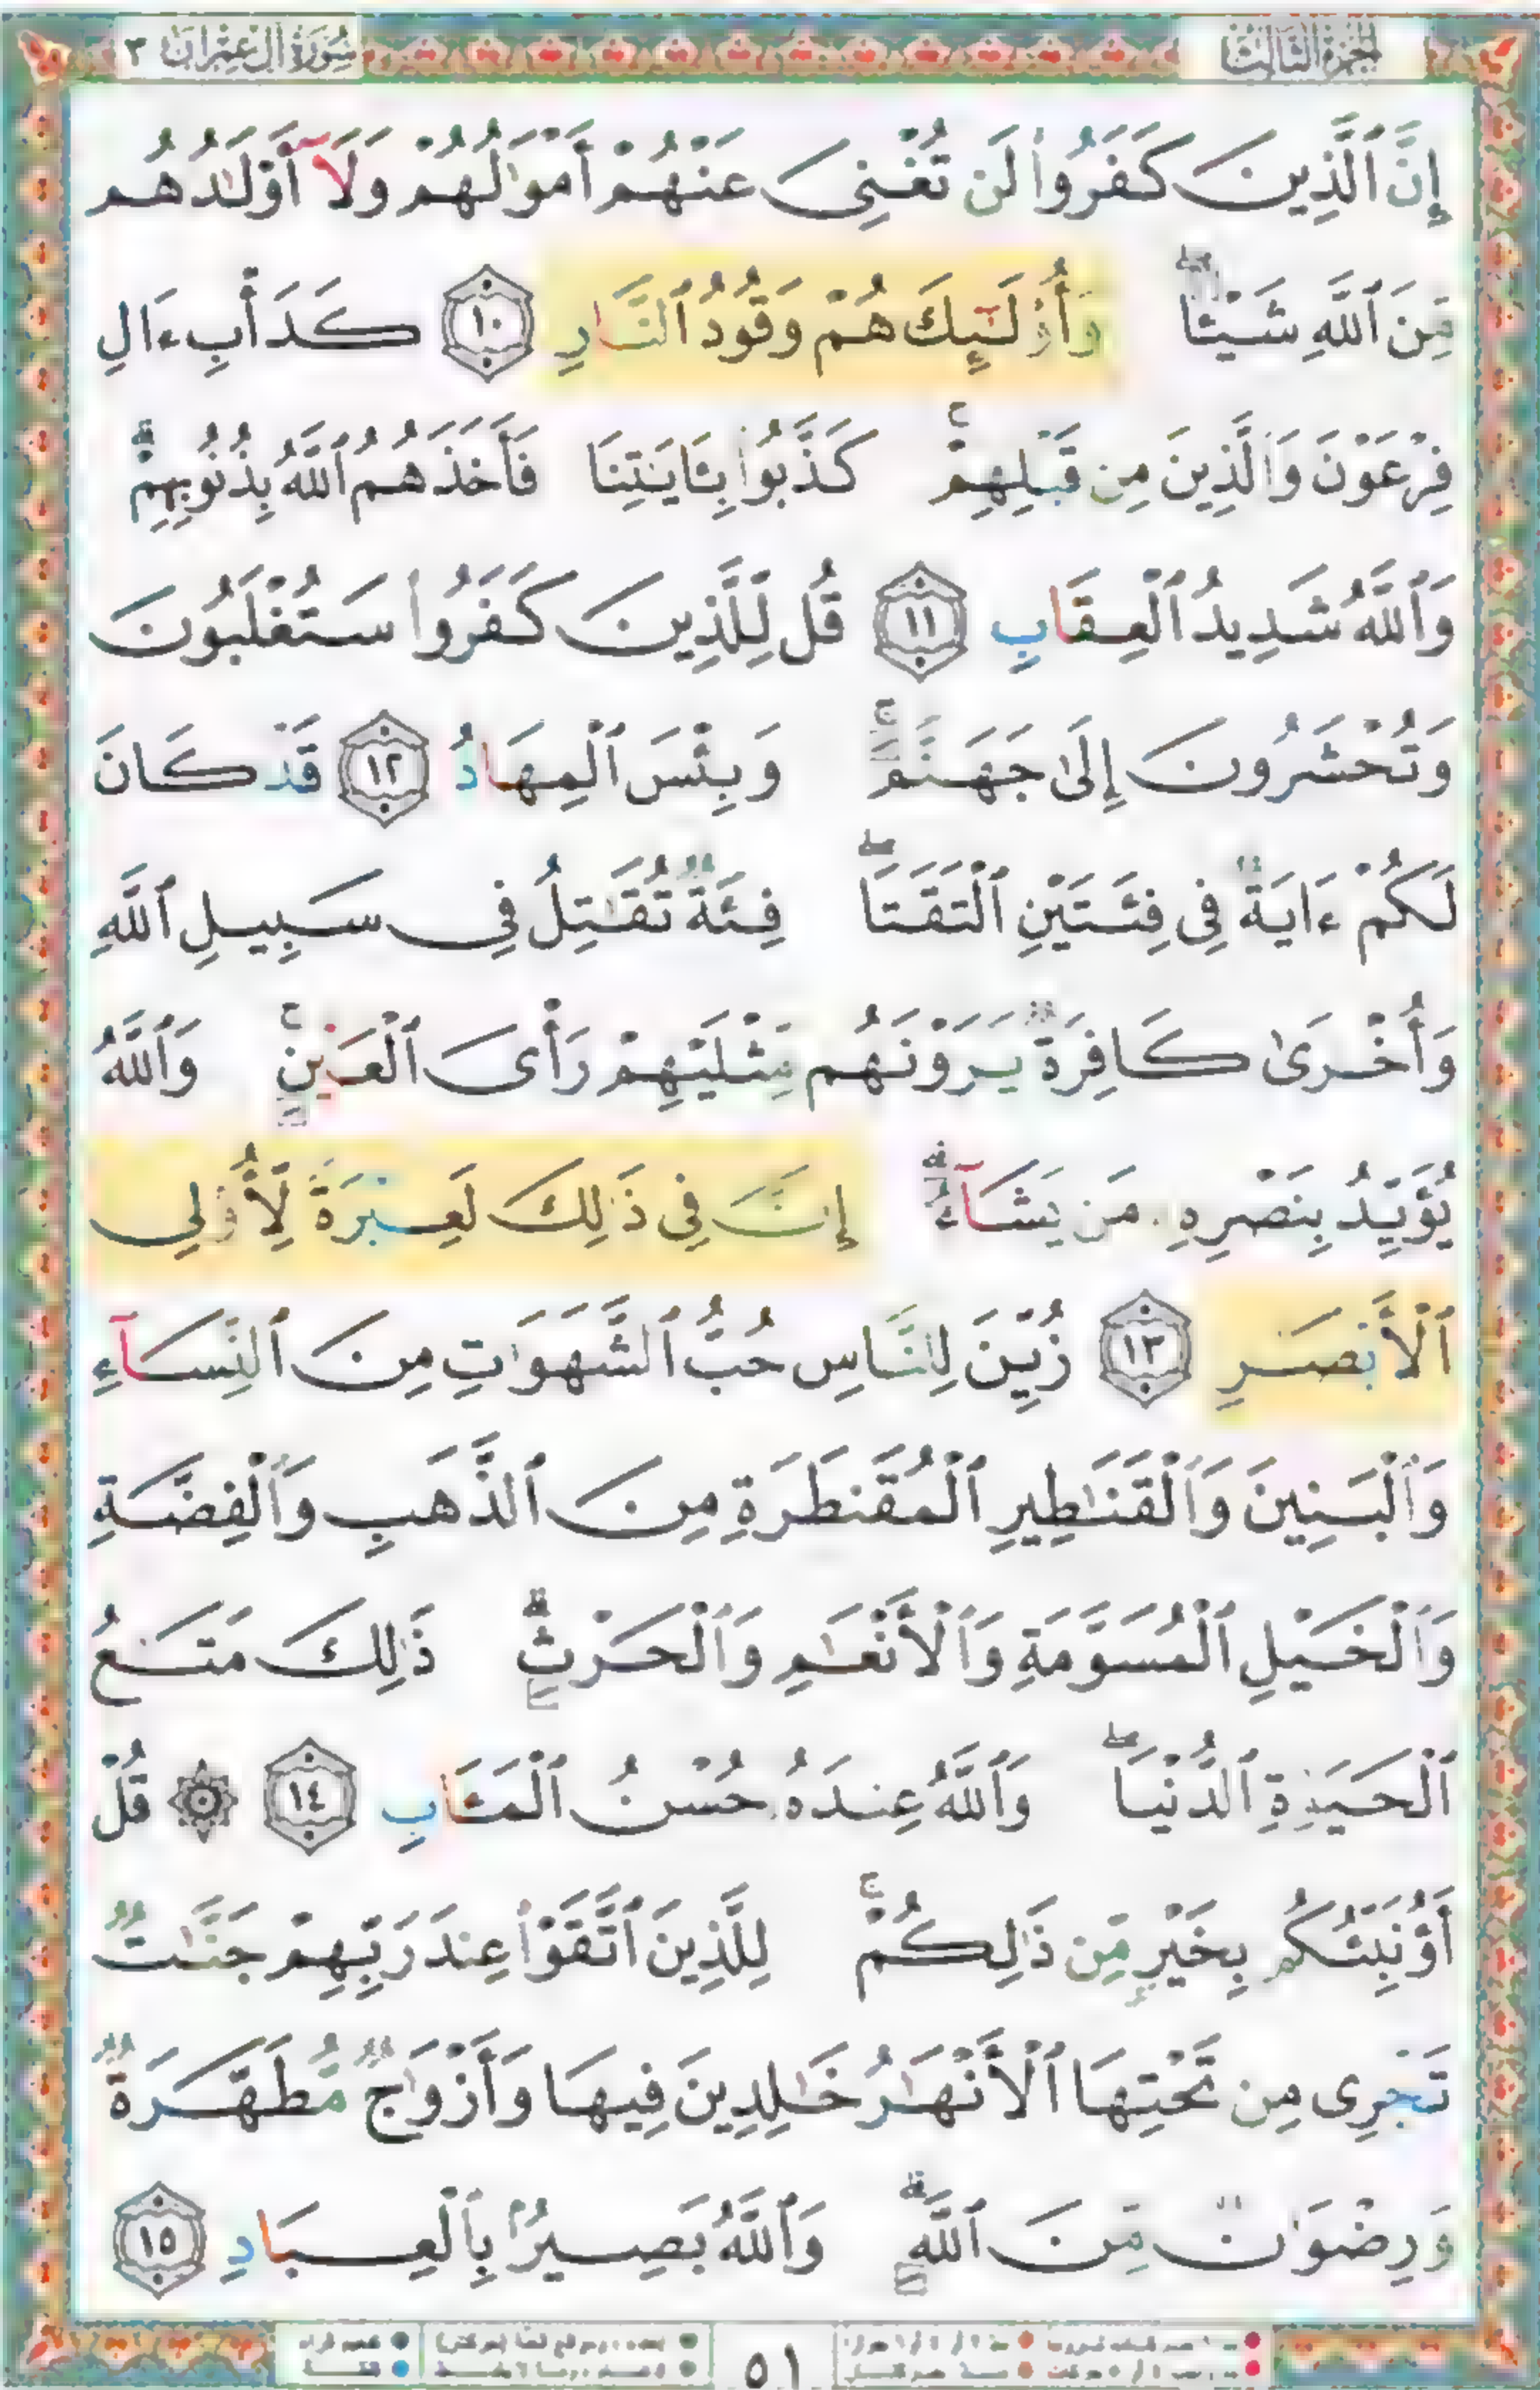 سُورَةُ آلِ عِمْرَانَ ٣
الجُزْءُ الثَّالِثُ
إِنَّ ٱلَّذِينَ كَفَرُوا۟ لَن تُغْنِىَ عَنْهُمْ أَمْوَٰلُهُمْ وَلَآ أَوْلَـٰدُهُم
مِّنَ ٱللَّهِ شَيْـًٔا ۖ وَأُو۟لَـٰٓئِكَ هُمْ وَقُودُ ٱلنَّارِ ١٠ كَدَأْبِ ءَالِ
فِرْعَوْنَ وَٱلَّذِينَ مِن قَبْلِهِمْ ۚ كَذَّبُوا۟ بِـَٔايَـٰتِنَا فَأَخَذَهُمُ ٱللَّهُ بِذُنُوبِهِمْ ۗ
وَٱللَّهُ شَدِيدُ ٱلْعِقَابِ ١١ قُل لِّلَّذِينَ كَفَرُوا۟ سَتُغْلَبُونَ
وَتُحْشَرُونَ إِلَىٰ جَهَنَّمَ ۚ وَبِئْسَ ٱلْمِهَادُ ١٢ قَدْ كَانَ
لَكُمْ ءَايَةٌ فِى فِئَتَيْنِ ٱلْتَقَتَا ۖ فِئَةٌ تُقَـٰتِلُ فِى سَبِيلِ ٱللَّهِ
وَأُخْرَىٰ كَافِرَةٌ يَرَوْنَهُم مِّثْلَيْهِمْ رَأْىَ ٱلْعَيْنِ ۚ وَٱللَّهُ
يُؤَيِّدُ بِنَصْرِهِۦ مَن يَشَآءُ ۗ إِنَّ فِى ذَٰلِكَ لَعِبْرَةً لِّأُو۟لِى
ٱلْأَبْصَـٰرِ ١٣ زُيِّنَ لِلنَّاسِ حُبُّ ٱلشَّهَوَٰتِ مِنَ ٱلنِّسَآءِ
وَٱلْبَنِينَ وَٱلْقَنَـٰطِيرِ ٱلْمُقَنطَرَةِ مِنَ ٱلذَّهَبِ وَٱلْفِضَّةِ
وَٱلْخَيْلِ ٱلْمُسَوَّمَةِ وَٱلْأَنْعَـٰمِ وَٱلْحَرْثِ ۗ ذَٰلِكَ مَتَـٰعُ
ٱلْحَيَوٰةِ ٱلدُّنْيَا ۖ وَٱللَّهُ عِندَهُۥ حُسْنُ ٱلْمَـَٔابِ ١٤ ۞ قُلْ
أَؤُنَبِّئُكُم بِخَيْرٍ مِّن ذَٰلِكُمْ ۚ لِلَّذِينَ ٱتَّقَوْا۟ عِندَ رَبِّهِمْ جَنَّـٰتٌ
تَجْرِى مِن تَحْتِهَا ٱلْأَنْهَـٰرُ خَـٰلِدِينَ فِيهَا وَأَزْوَٰجٌ مُّطَهَّرَةٌ
وَرِضْوَٰنٌ مِّنَ ٱللَّهِ ۗ وَٱللَّهُ بَصِيرٌۢ بِٱلْعِبَادِ ١٥
٥١